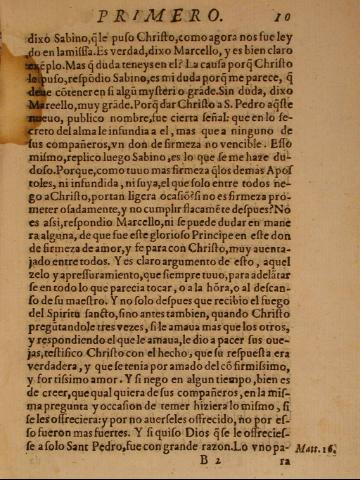 PRIMERO. 10
dixo Sabino, q̃ le puso Christo, como agora nos fue ley
do en la missa. Es verdad, dixo Marcello, y es bien claro
exẽplo. Mas q̃ duda teneys en el? La causa porq̃ Christo
le puso, respõdio Sabino, es mi duda porq̃ me parece, q̃
deue cõtener en si algũ mysterio grãde. Sin duda, dixo
Marcello, muy grãde. Porq̃ dar Christo a S. Pedro aq̃ste
nueuo, publico nombre, fue cierta señal: que en lo se-
creto del alma le infundia a el, mas que a ninguno de
sus compañeros, vn don de firmeza no vencible. Esso
mismo, replico luego Sabino, es lo que se me haze du-
doso. Porque, como tuuo mas firmeza q̃ los demas Apos
toles, ni infundida, ni suya, el que solo entre todos ne-
go a Christo, por tan ligera ocasiõ? si no es firmeza pro-
meter osadamente, y no cumplir flacamẽte despues? No
es assi, respondio Marcello, ni se puede dudar en mane
ra alguna, de que fue este glorioso Principe en este don
de firmeza de amor, y fe para con Christo, muy auenta-
jado entre todos. Y es claro argumento de esto, aquel
zelo y apressuramiento, que siempre tuuo, para adelãtar
se en todo lo que parecia tocar, o a la hõra, o al descan-
so de su maestro. Y no solo despues que recibio el fuego
del Spiritu sancto, sino antes tambien, quando Christo
pregũtandole tres vezes, si le amaua mas que los otros,
y respondiendo el que le amaua, le dio a pacer sus oue-
jas, testifico Christo con el hecho, que su respuesta era
verdadera, y que se tenia por amado del cõ firmissimo,
y fortissimo amor. Y si nego en algun tiempo, bien es
de creer, que qual quiera de sus compañeros, en la mis-
ma pregunta y occasion de temer hiziera lo mismo, si
se les offreciera: y por no auerseles offrecido, no por es-
so fueron mas fuertes. Y si quiso Dios q̃ se le offrecies-
se a solo Sant Pedro, fue con grande razon. Lo vno pa-
Matt. 16.
B 2 ra